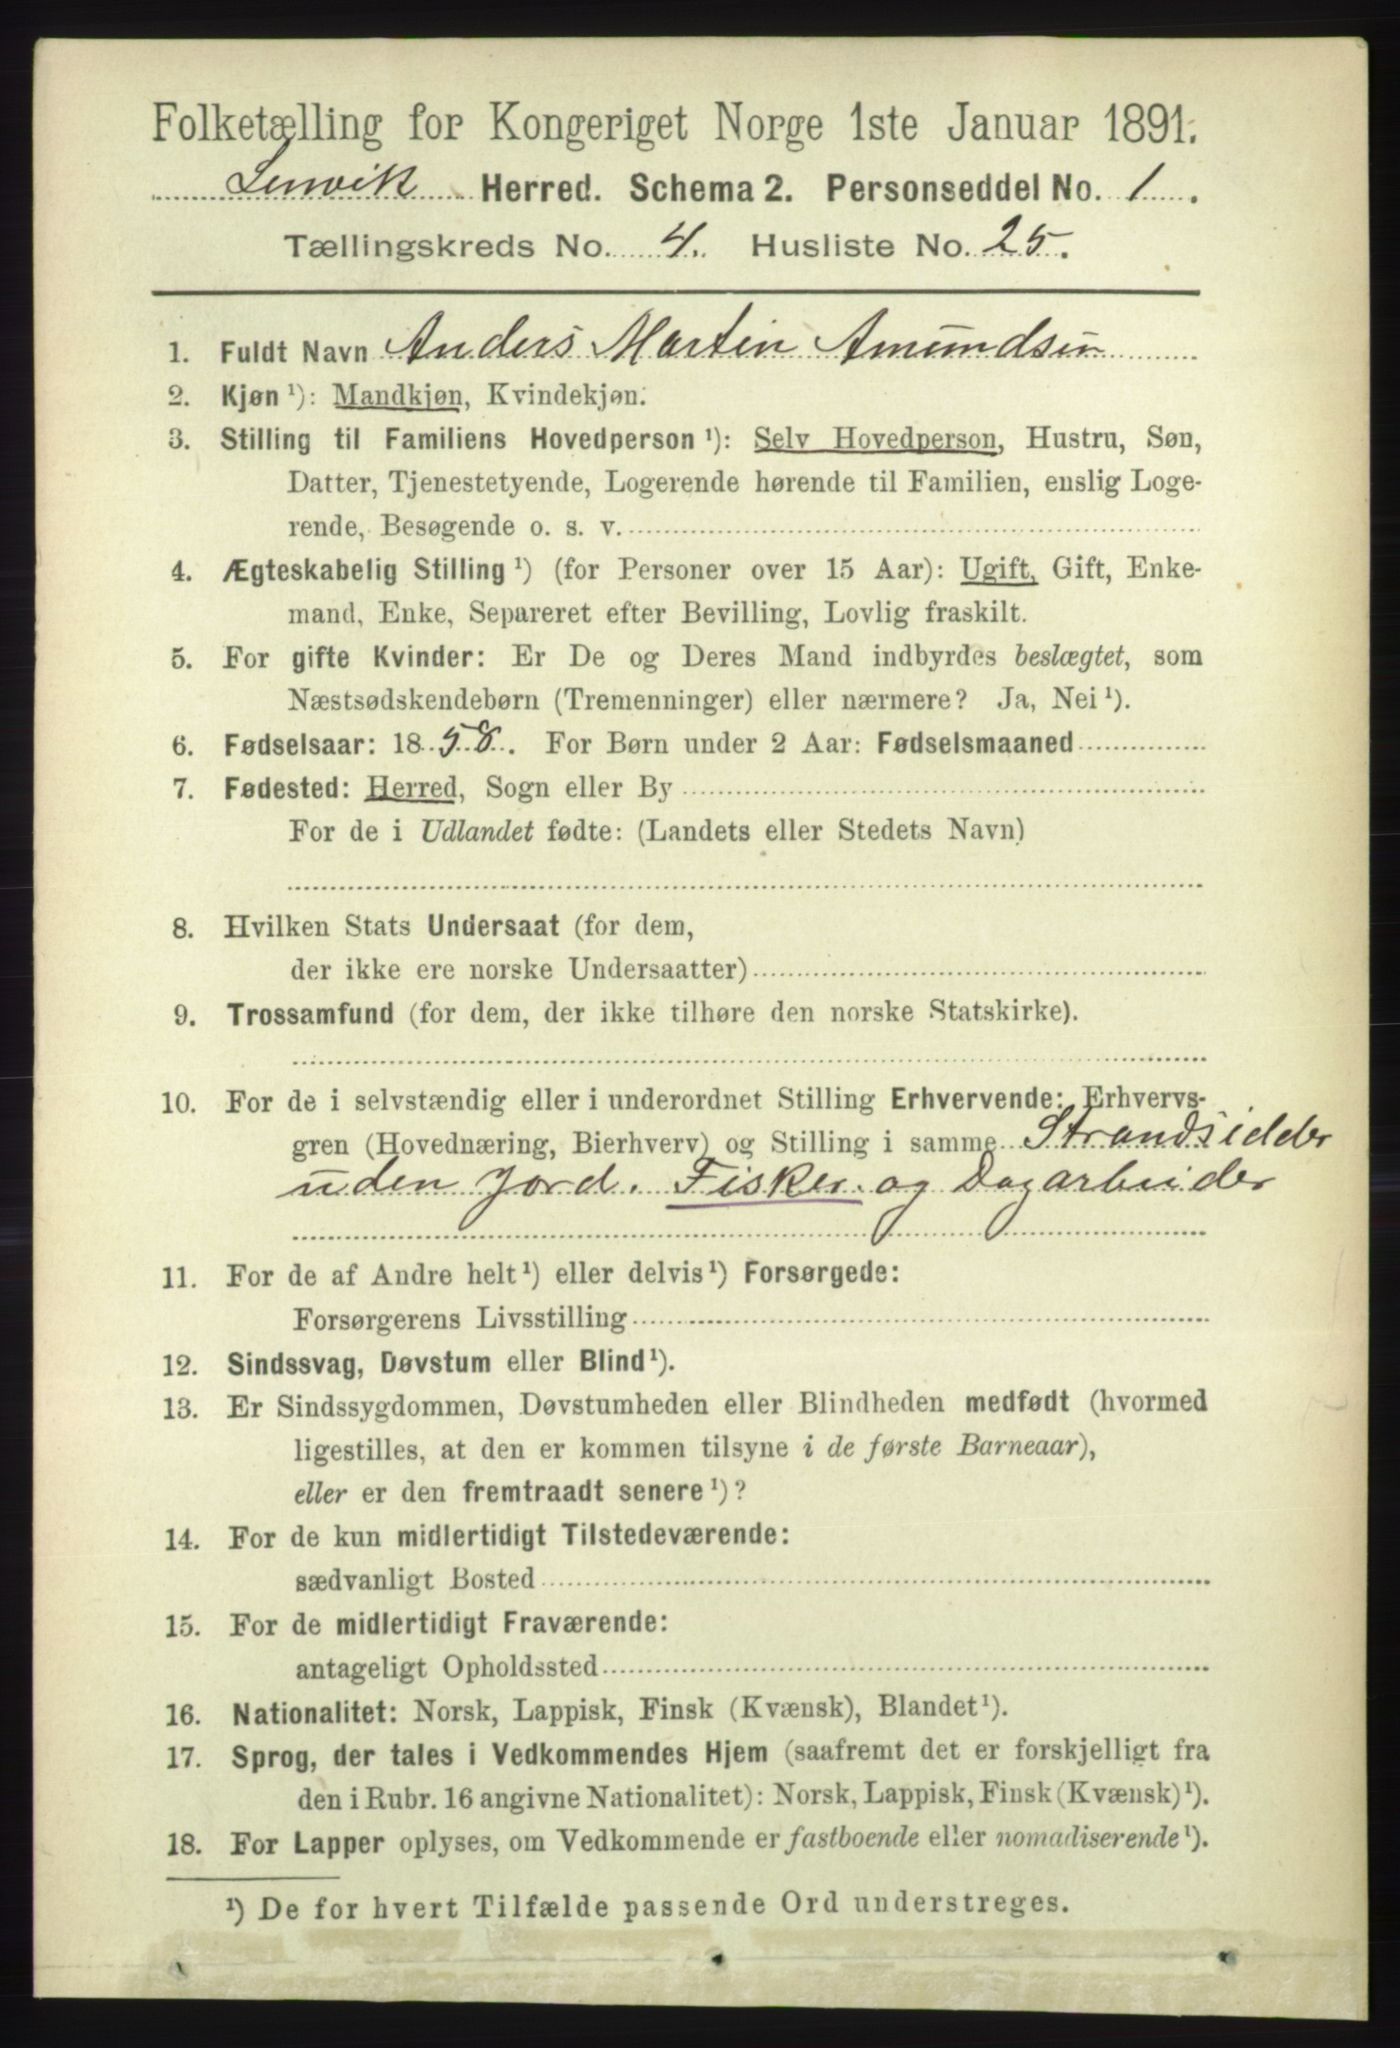 Folketælling for Kongeriget Norge 1ste Januar 1891.
Lenvik Herred. Schema 2. Personseddel No. 1.
Tællingskreds No. 4. Husliste No. 25.
1. Fuldt Navn Anders Martin Amundsen
2. Kjøn ¹): Mandkjøn, Kvindekjøn.
3. Stilling til Familiens Hovedperson ¹): Selv Hovedperson, Hustru, Søn,
Datter, Tjenestetyende, Logerende hørende til Familien, enslig Loge-
rende, Besøgende o. s. v.
4. Ægteskabelig Stilling ¹) (for Personer over 15 Aar): Ugift, Gift, Enke-
mand, Enke, Separeret efter Bevilling, Lovlig fraskilt.
5. For gifte Kvinder: Er De og Deres Mand indbyrdes beslægtet, som
Næstsødskendebørn (Tremenninger) eller nærmere? Ja, Nei ¹).
6. Fødselsaar: 1858. For Børn under 2 Aar: Fødselsmaaned
7. Fødested: Herred, Sogn eller By
For de i Udlandet fødte: (Landets eller Stedets Navn)
8. Hvilken Stats Undersaat (for dem,
der ikke ere norske Undersaatter)
9. Trossamfund (for dem, der ikke tilhøre den norske Statskirke).
10. For de i selvstændig eller i underordnet Stilling Erhvervende: Erhvervs-
gren (Hovednæring, Bierhverv) og Stilling i samme Strandsidder
uden Jord. Fisker og Dagarbeider
11. For de af Andre helt ¹) eller delvis ¹) Forsørgede:
Forsørgerens Livsstilling
12. Sindssvag, Døvstum eller Blind ¹).
13. Er Sindssygdommen, Døvstumheden eller Blindheden medfødt (hvormed
ligestilles, at den er kommen tilsyne i de første Barneaar),
eller er den fremtraadt senere ¹)?
14. For de kun midlertidigt Tilstedeværende:
sædvanligt Bosted
15. For de midlertidigt Fraværende:
antageligt Opholdssted
16. Nationalitet: Norsk, Lappisk, Finsk (Kvænsk), Blandet ¹).
17. Sprog, der tales i Vedkommendes Hjem (saafremt det er forskjelligt fra
den i Rubr. 16 angivne Nationalitet): Norsk, Lappisk, Finsk (Kvænsk) ¹).
18. For Lapper oplyses, om Vedkommende er fastboende eller nomadiserende ¹).
¹) De for hvert Tilfælde passende Ord understreges.